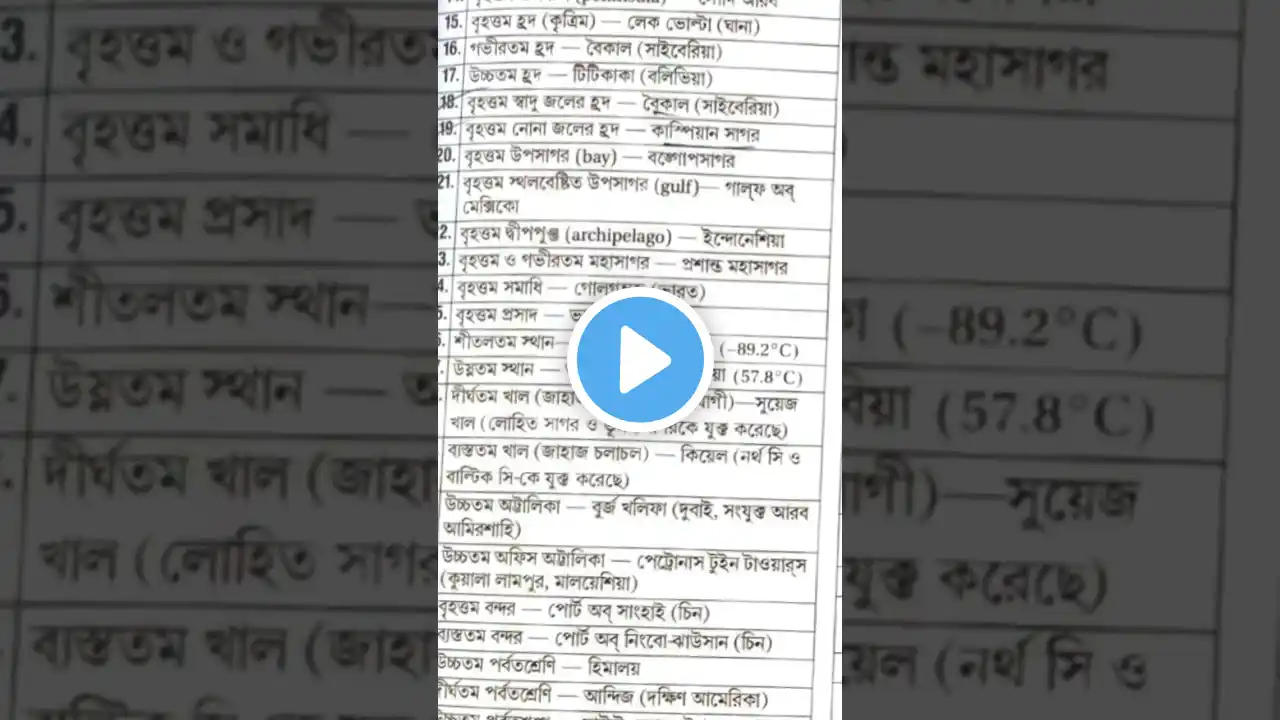 15. বৃহত্তম হ্রদ (কৃত্রিম) — লেক ভোল্টা (ঘানা)
16. গভীরতম হ্রদ — বৈকাল (সাইবেরিয়া)
17. উচ্চতম হ্রদ — টিটিকাকা (বলিভিয়া)
18. বৃহত্তম স্বাদু জলের হ্রদ — বৈকাল (সাইবেরিয়া)
19. বৃহত্তম নোনা জলের হ্রদ — কাস্পিয়ান সাগর
20. বৃহত্তম উপসাগর (bay) — বঙ্গোপসাগর
21. বৃহত্তম স্থলবেষ্টিত উপসাগর (gulf)— গাল্‌ফ অব্
মেক্সিকো
2. বৃহত্তম দ্বীপপুঞ্জ (archipelago) — ইন্দোনেশিয়া
3. বৃহত্তম ও গভীরতম মহাসাগর — প্রশান্ত মহাসাগর
4. বৃহত্তম সমাধি —
বৃহত্তম প্রসাদ —
শীতলতম স্থান— (–89.2°C)
উষ্ণতম স্থান — (57.8°C)
দীর্ঘতম খাল —সুয়েজ
খাল (লোহিত সাগর ও যুক্ত করেছে)
ব্যস্ততম খাল (জাহাজ চলাচল) — কিয়েল (নর্থ সি ও
বাল্টিক সি-কে যুক্ত করেছে)
উচ্চতম অট্টালিকা — বুর্জ খলিফা (দুবাই, সংযুক্ত আরব
আমিরশাহি)
উচ্চতম অফিস অট্টালিকা — পেট্রোনাস টুইন টাওয়ার্‌স
(কুয়ালা লামপুর, মালয়েশিয়া)
বৃহত্তম বন্দর — পোর্ট অব্ সাংহাই (চিন)
ব্যস্ততম বন্দর — পোর্ট অব্ নিংবো-ঝাউসান (চিন)
উচ্চতম পর্বতশ্রেণি — হিমালয়
দীর্ঘতম পর্বতশ্রেণি — আন্দিজ (দক্ষিণ আমেরিকা)